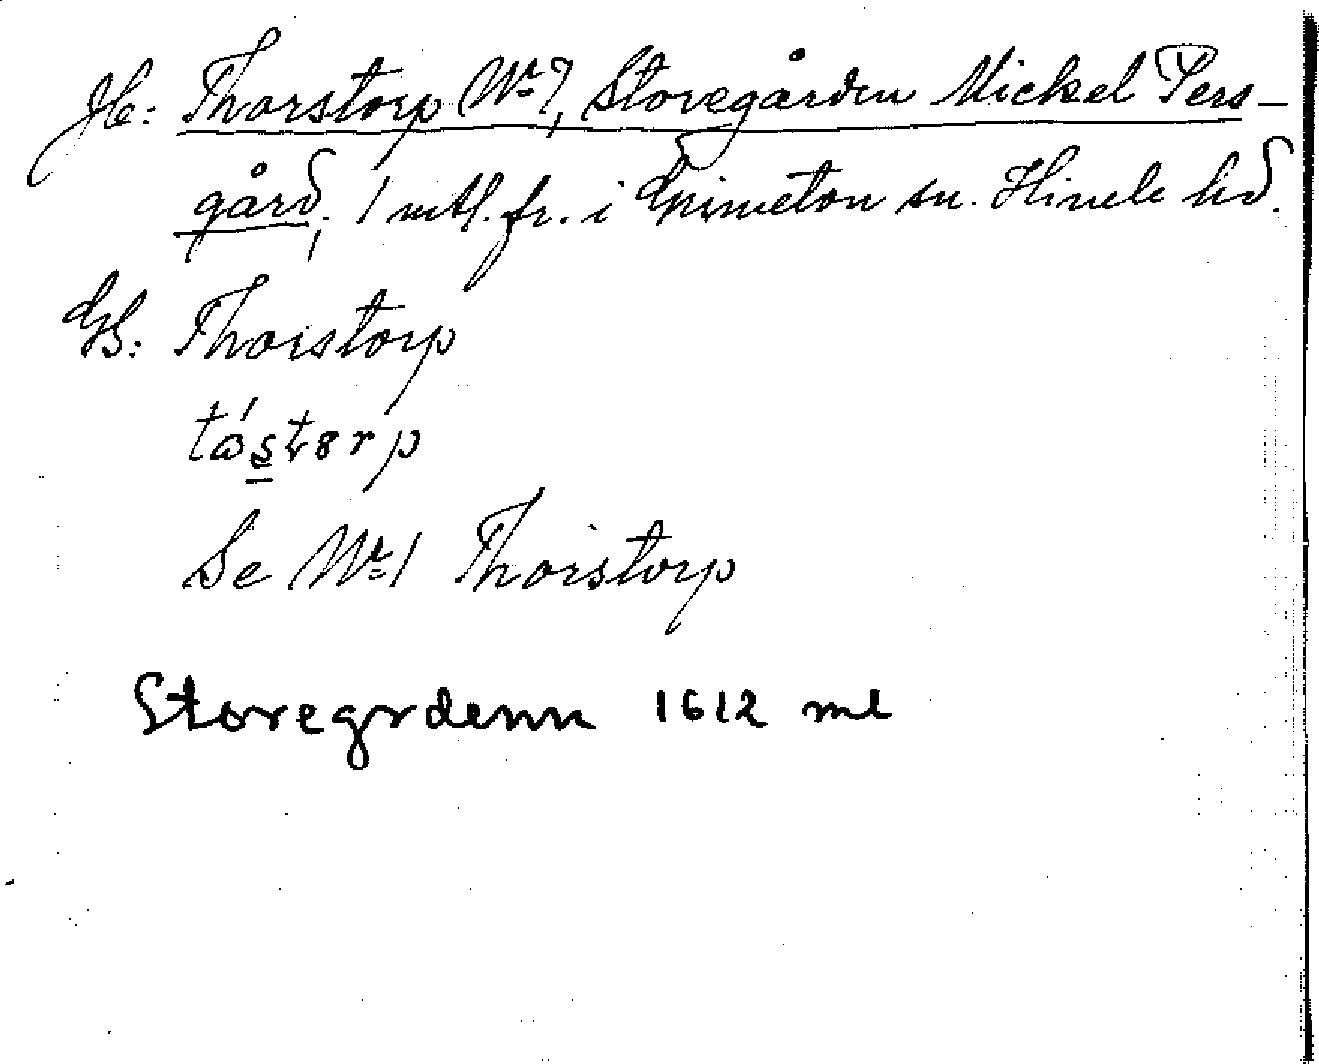 Jb: Thorstorp No 7, Storegården Mickel Pers-
gård, 1 mtl. fr. i Grimeton sn. Himle hd.
GS: Thorstorp
tástorp
Se No 1 Thorstorp
Storegrdenn 1612 ml